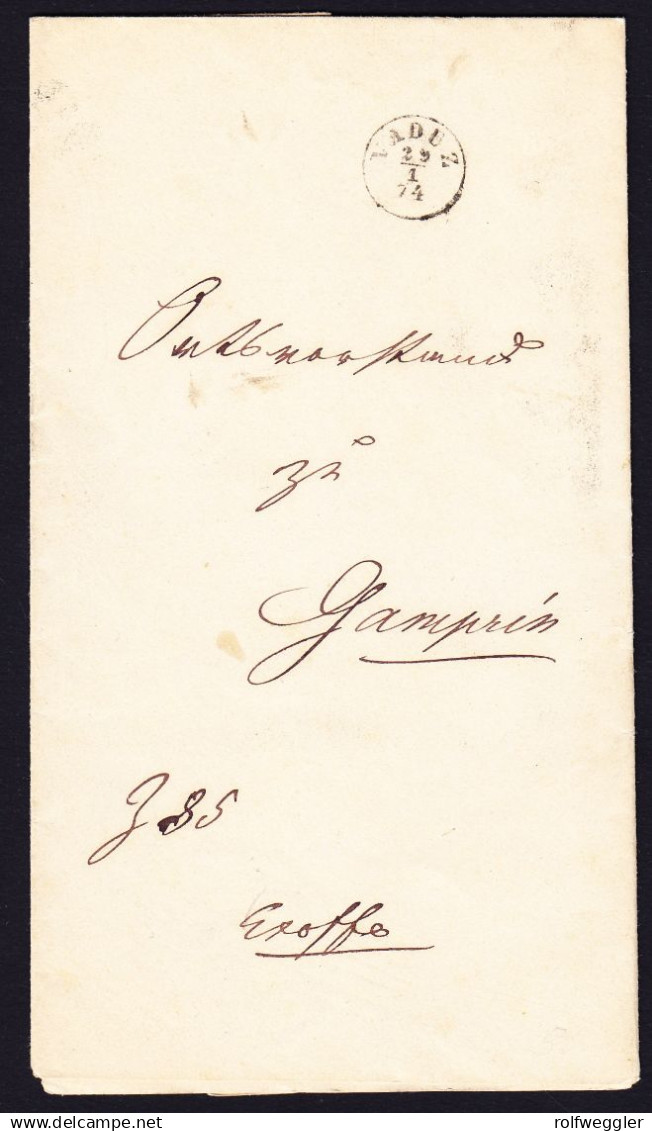 VADUZ
29
1
74
Ortsvorstand
zu
Gamprin
Z 85
Exoffo
delcampe.net
rolfweggler